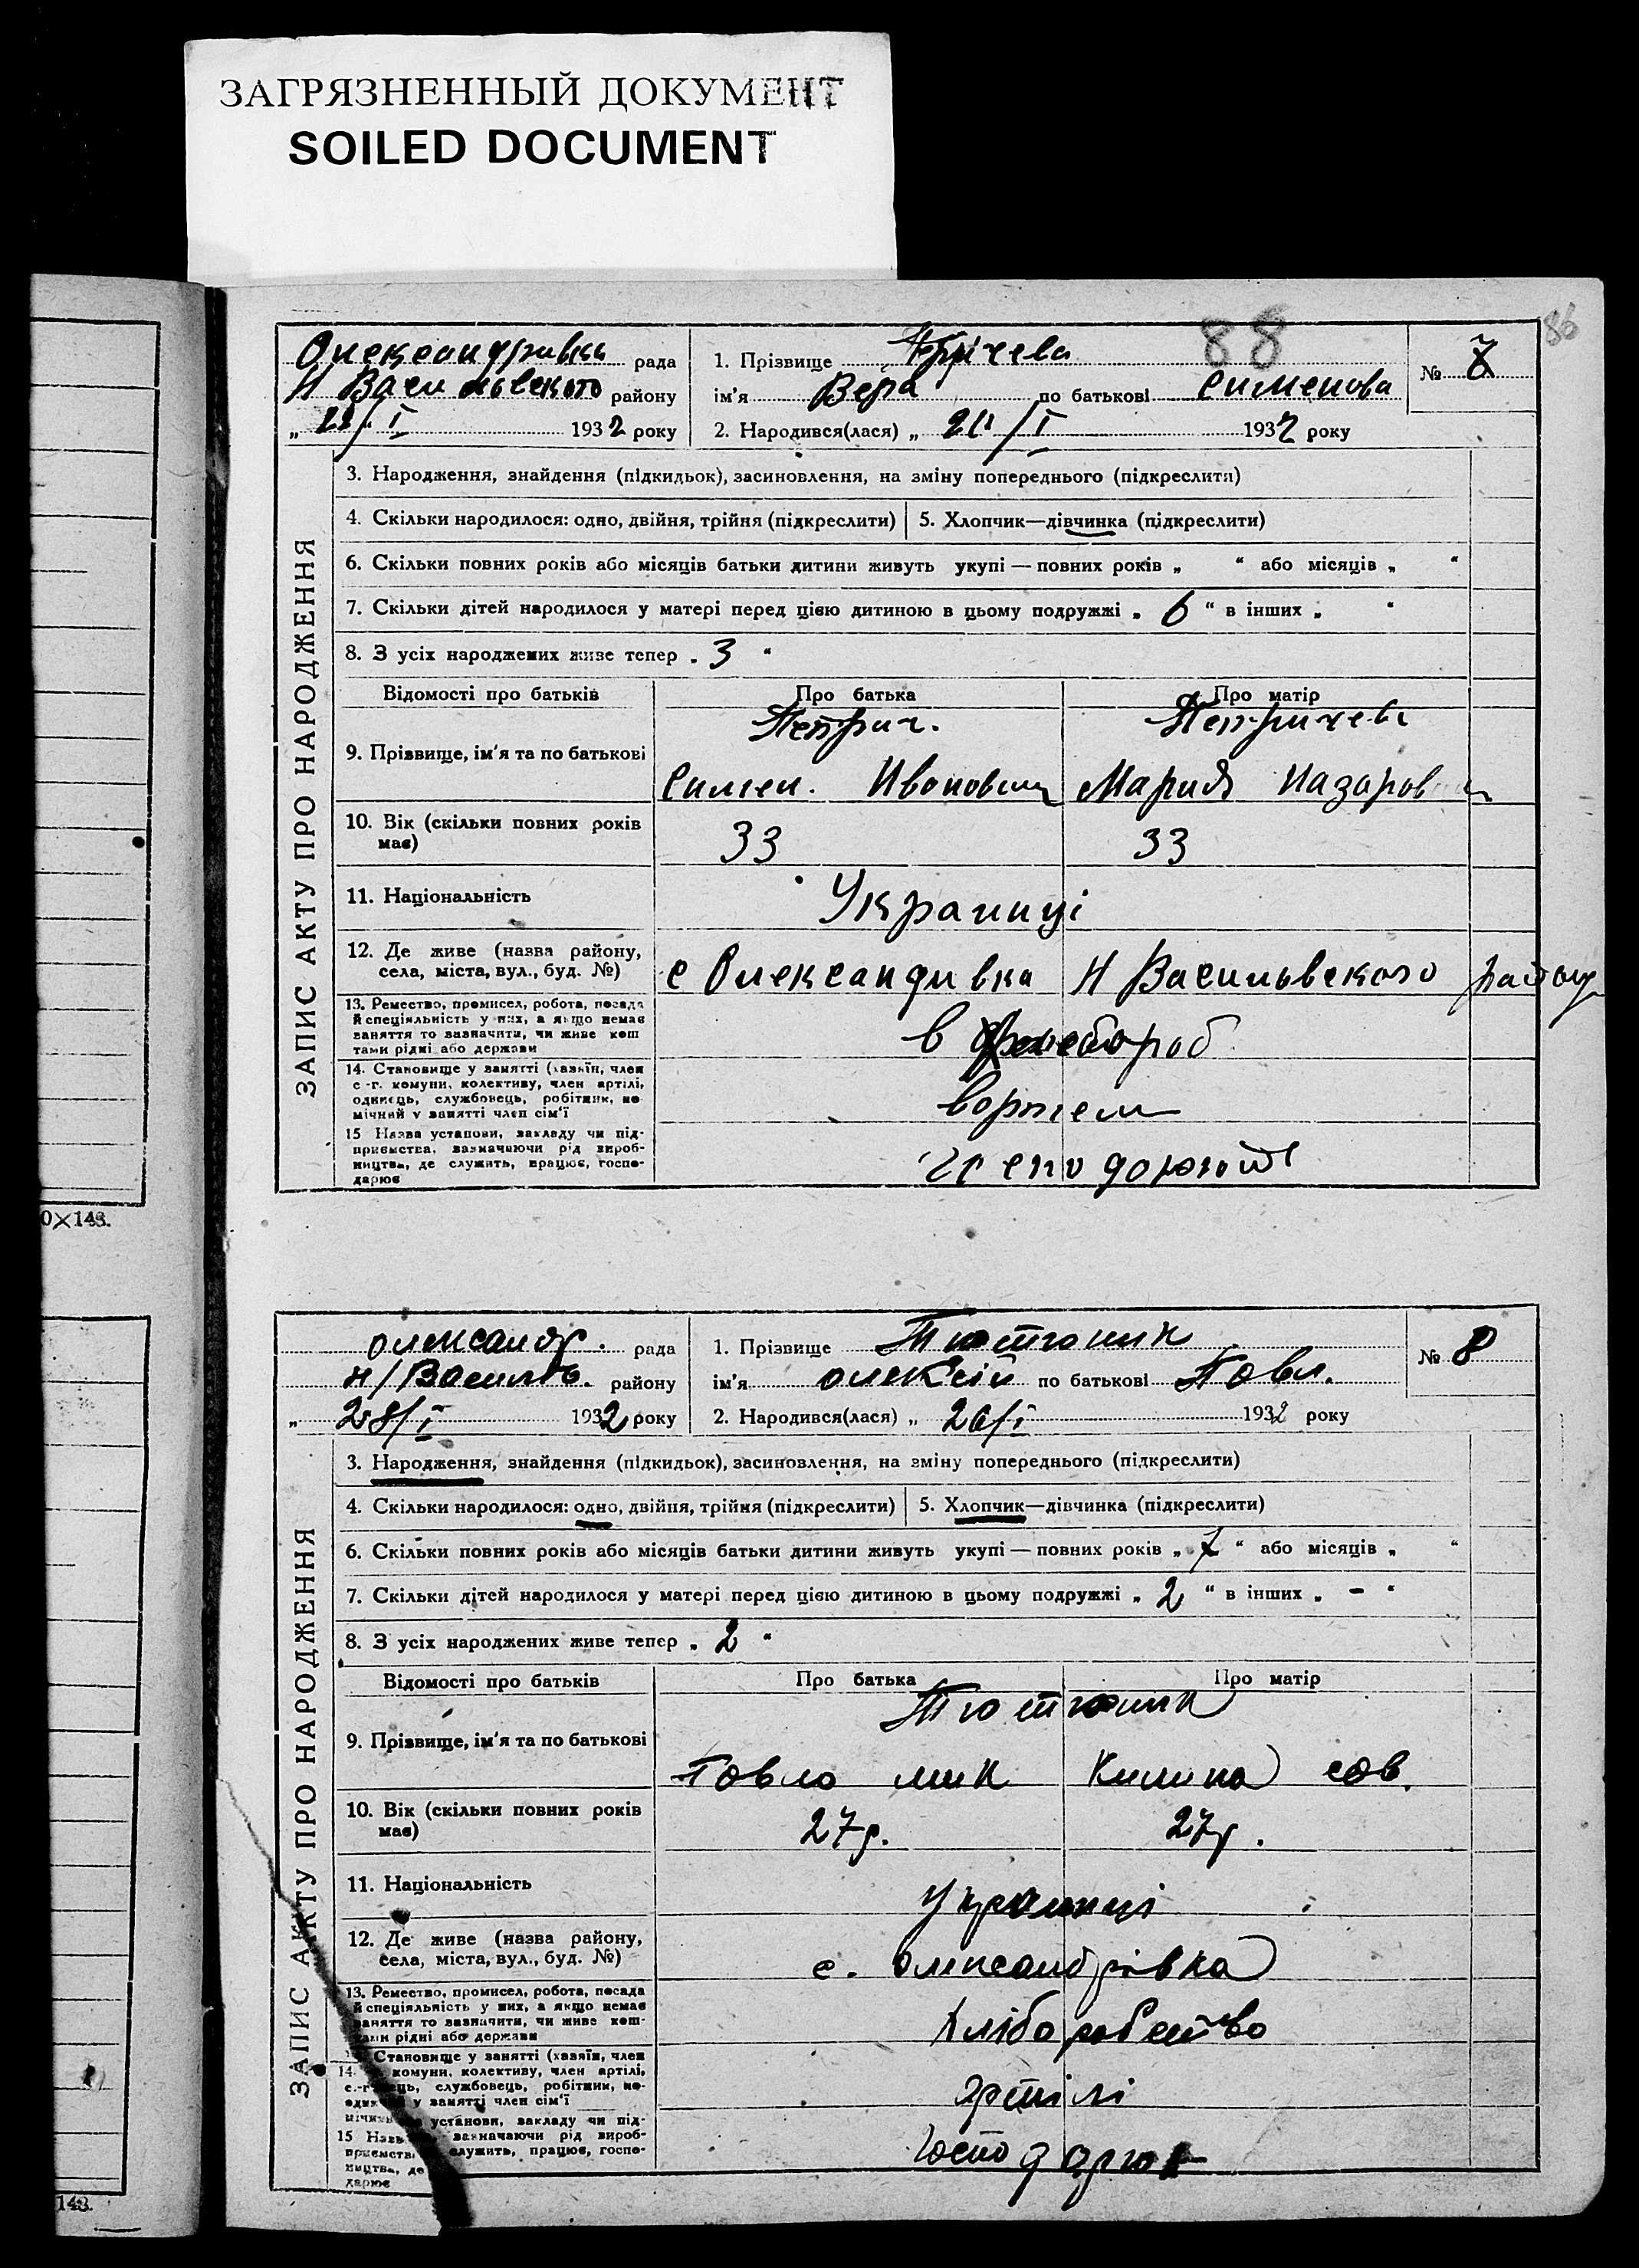 ЗАГРЯЗНЕННЫЙ ДОКУМЕНТ
SOILED DOCUMENT
88
86
рада
1. Прізвище
№ 7
Н Васильвського району
ім'я Вера по батькові Сименова
" /I 1932 року
2. Народився(лася) " /I 1932 року
ЗАПИС АКТУ ПРО НАРОДЖЕННЯ
3. Народження, знайдення (підкидьок), засиновлення, на зміну попереднього (підкреслити)
4. Скільки народилося: одно, двійня, трійня (підкреслити)
5. Хлопчик—дівчинка (підкреслити)
6. Скільки повних років або місяців батьки дитини живуть укупі — повних років „ “ або місяців „ “
7. Скільки дітей народилося у матері перед цією дитиною в цьому подружжі „ 6 “ в інших „ “
8. З усіх народжених живе тепер „ 3 “
Відомості про батьків
Про батька
Про матір
9. Прізвище, ім'я та по батькові
Петрич.
Петричева
Симен. Ивонович
Мария Назаров
10. Вік (скільки повних років має)
33
33
11. Національність
Украинці
12. Де живе (назва району, села, міста, вул., буд. №)
с Олександивка Н Васильвского району
13. Ремество, промисел, робота, посада й спеціяльність у них, а якщо немає заняття то зазначити, чи живе коштами рідні або держави
14. Становище у занятті (хазяїн, член с.-г. комуни, колективу, член артілі, одинець, службовець, робітник, помічний у занятті член сім'ї
15 Назва установи, закладу чи підприємства, зазначаючи рід виробництва, де служить, працює, господарює
0×148.
Олександр. рада
1. Прізвище Тютюник
№ 8
Н/Василь. району
ім'я Олексій по батькові Павл.
„ 28/I 1932 року
2. Народився(лася) „ 26/I 1932 року
ЗАПИС АКТУ ПРО НАРОДЖЕННЯ
3. Народження, знайдення (підкидьок), засиновлення, на зміну попереднього (підкреслити)
4. Скільки народилося: одно, двійня, трійня (підкреслити)
5. Хлопчик—дівчинка (підкреслити)
6. Скільки повних років або місяців батьки дитини живуть укупі — повних років „ 7 “ або місяців „ “
7. Скільки дітей народилося у матері перед цією дитиною в цьому подружжі „ 2 “ в інших „ - “
8. З усіх народжених живе тепер „ 2 “
Відомості про батьків
Про батька
Про матір
9. Прізвище, ім'я та по батькові
Тютюник
Павло Мик
Килина Сав.
10. Вік (скільки повних років має)
27р.
27р.
11. Національність
Українці
12. Де живе (назва району, села, міста, вул., буд. №)
с. Олександрівка
13. Ремество, промисел, робота, посада й спеціяльність у них, а якщо немає заняття то зазначити, чи живе коштами рідні або держави
Хліборобство
14. Становище у занятті (хазяїн, член с.-г. комуни, колективу, член артілі, одинець, службовець, робітник, помічний у занятті член сім'ї
Артілі
15 Назва установи, закладу чи підприємства, зазначаючи рід виробництва, де служить, працює, господарює
Господарює
148.